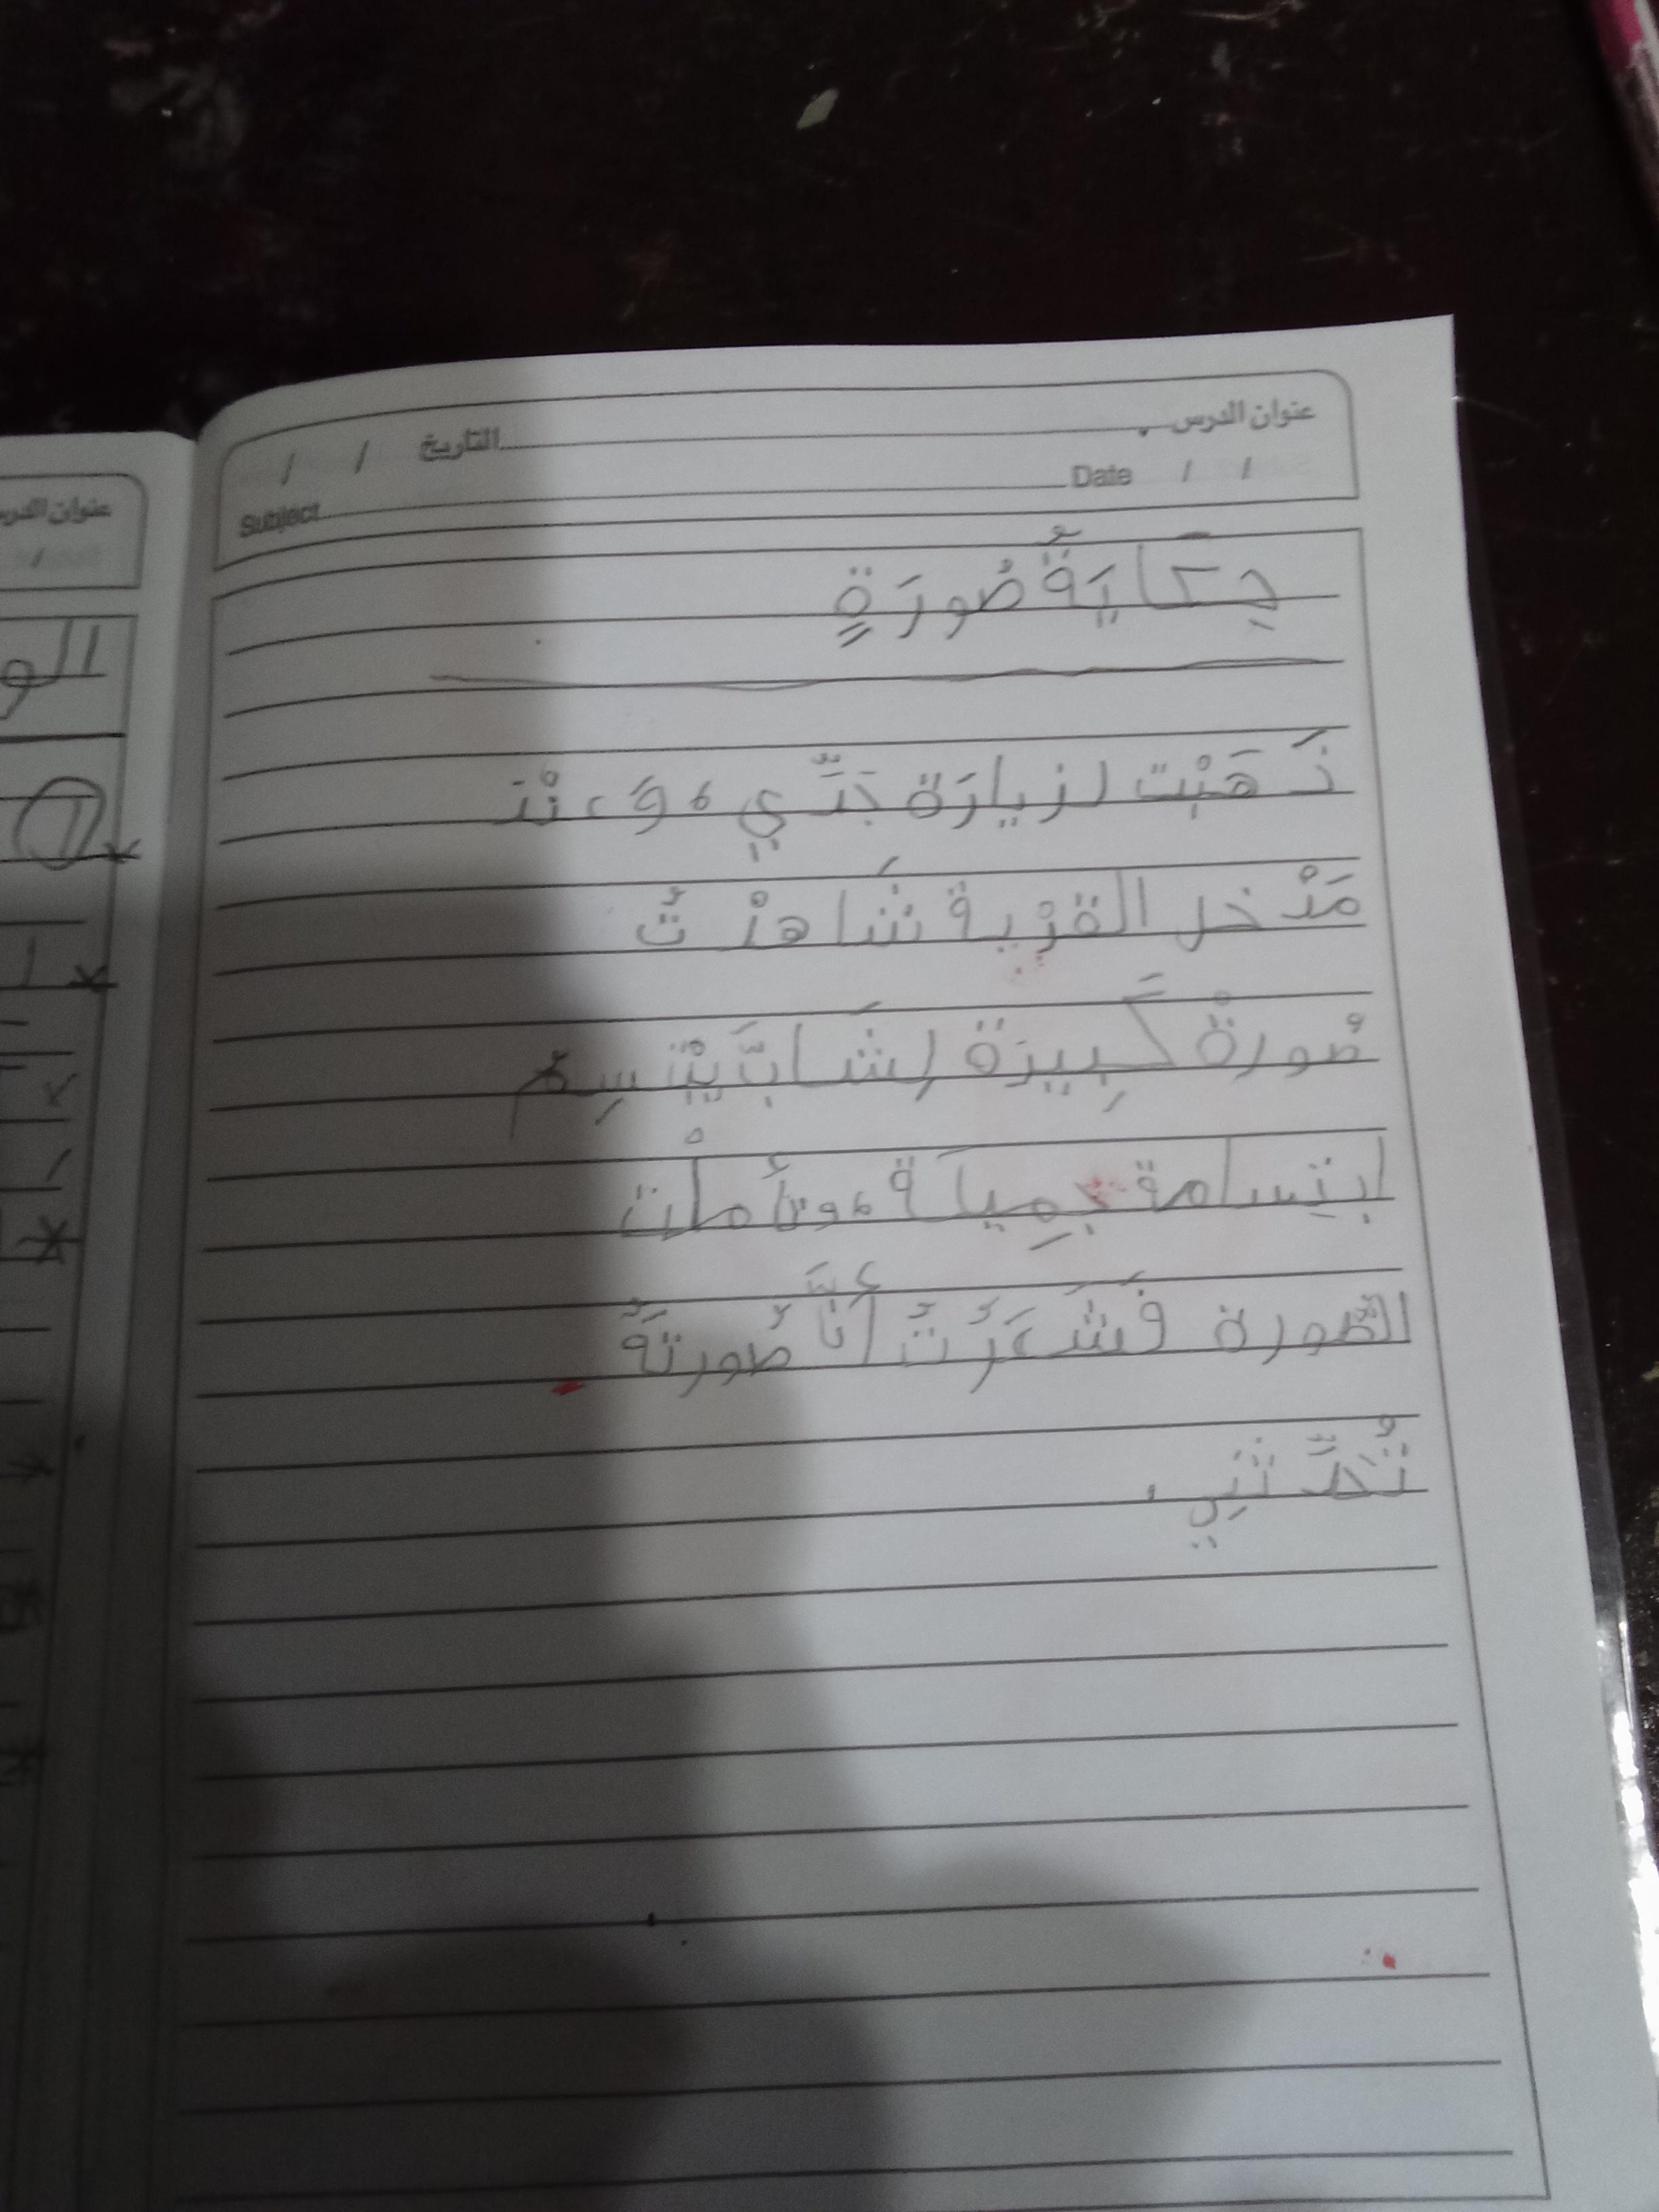 عنوان الدرس التاريخ / /
Subject Date / /
حِكَايَةُ صُورَةٍ
ذَهَبْت لزيارَة جَدَّتي ، وَعنْد
مَدْخل القرْية شَاهدْتُ
صُورةً كَبِيرَة لشَابّ يَبْتَسِمُ
ابتِسامة جمِيلة ، وتأملْت
الصُّورة فَشَعَرْتُ أنَّ صُورتَهُ
تُحَدّثنِي .
عنوان الدرس